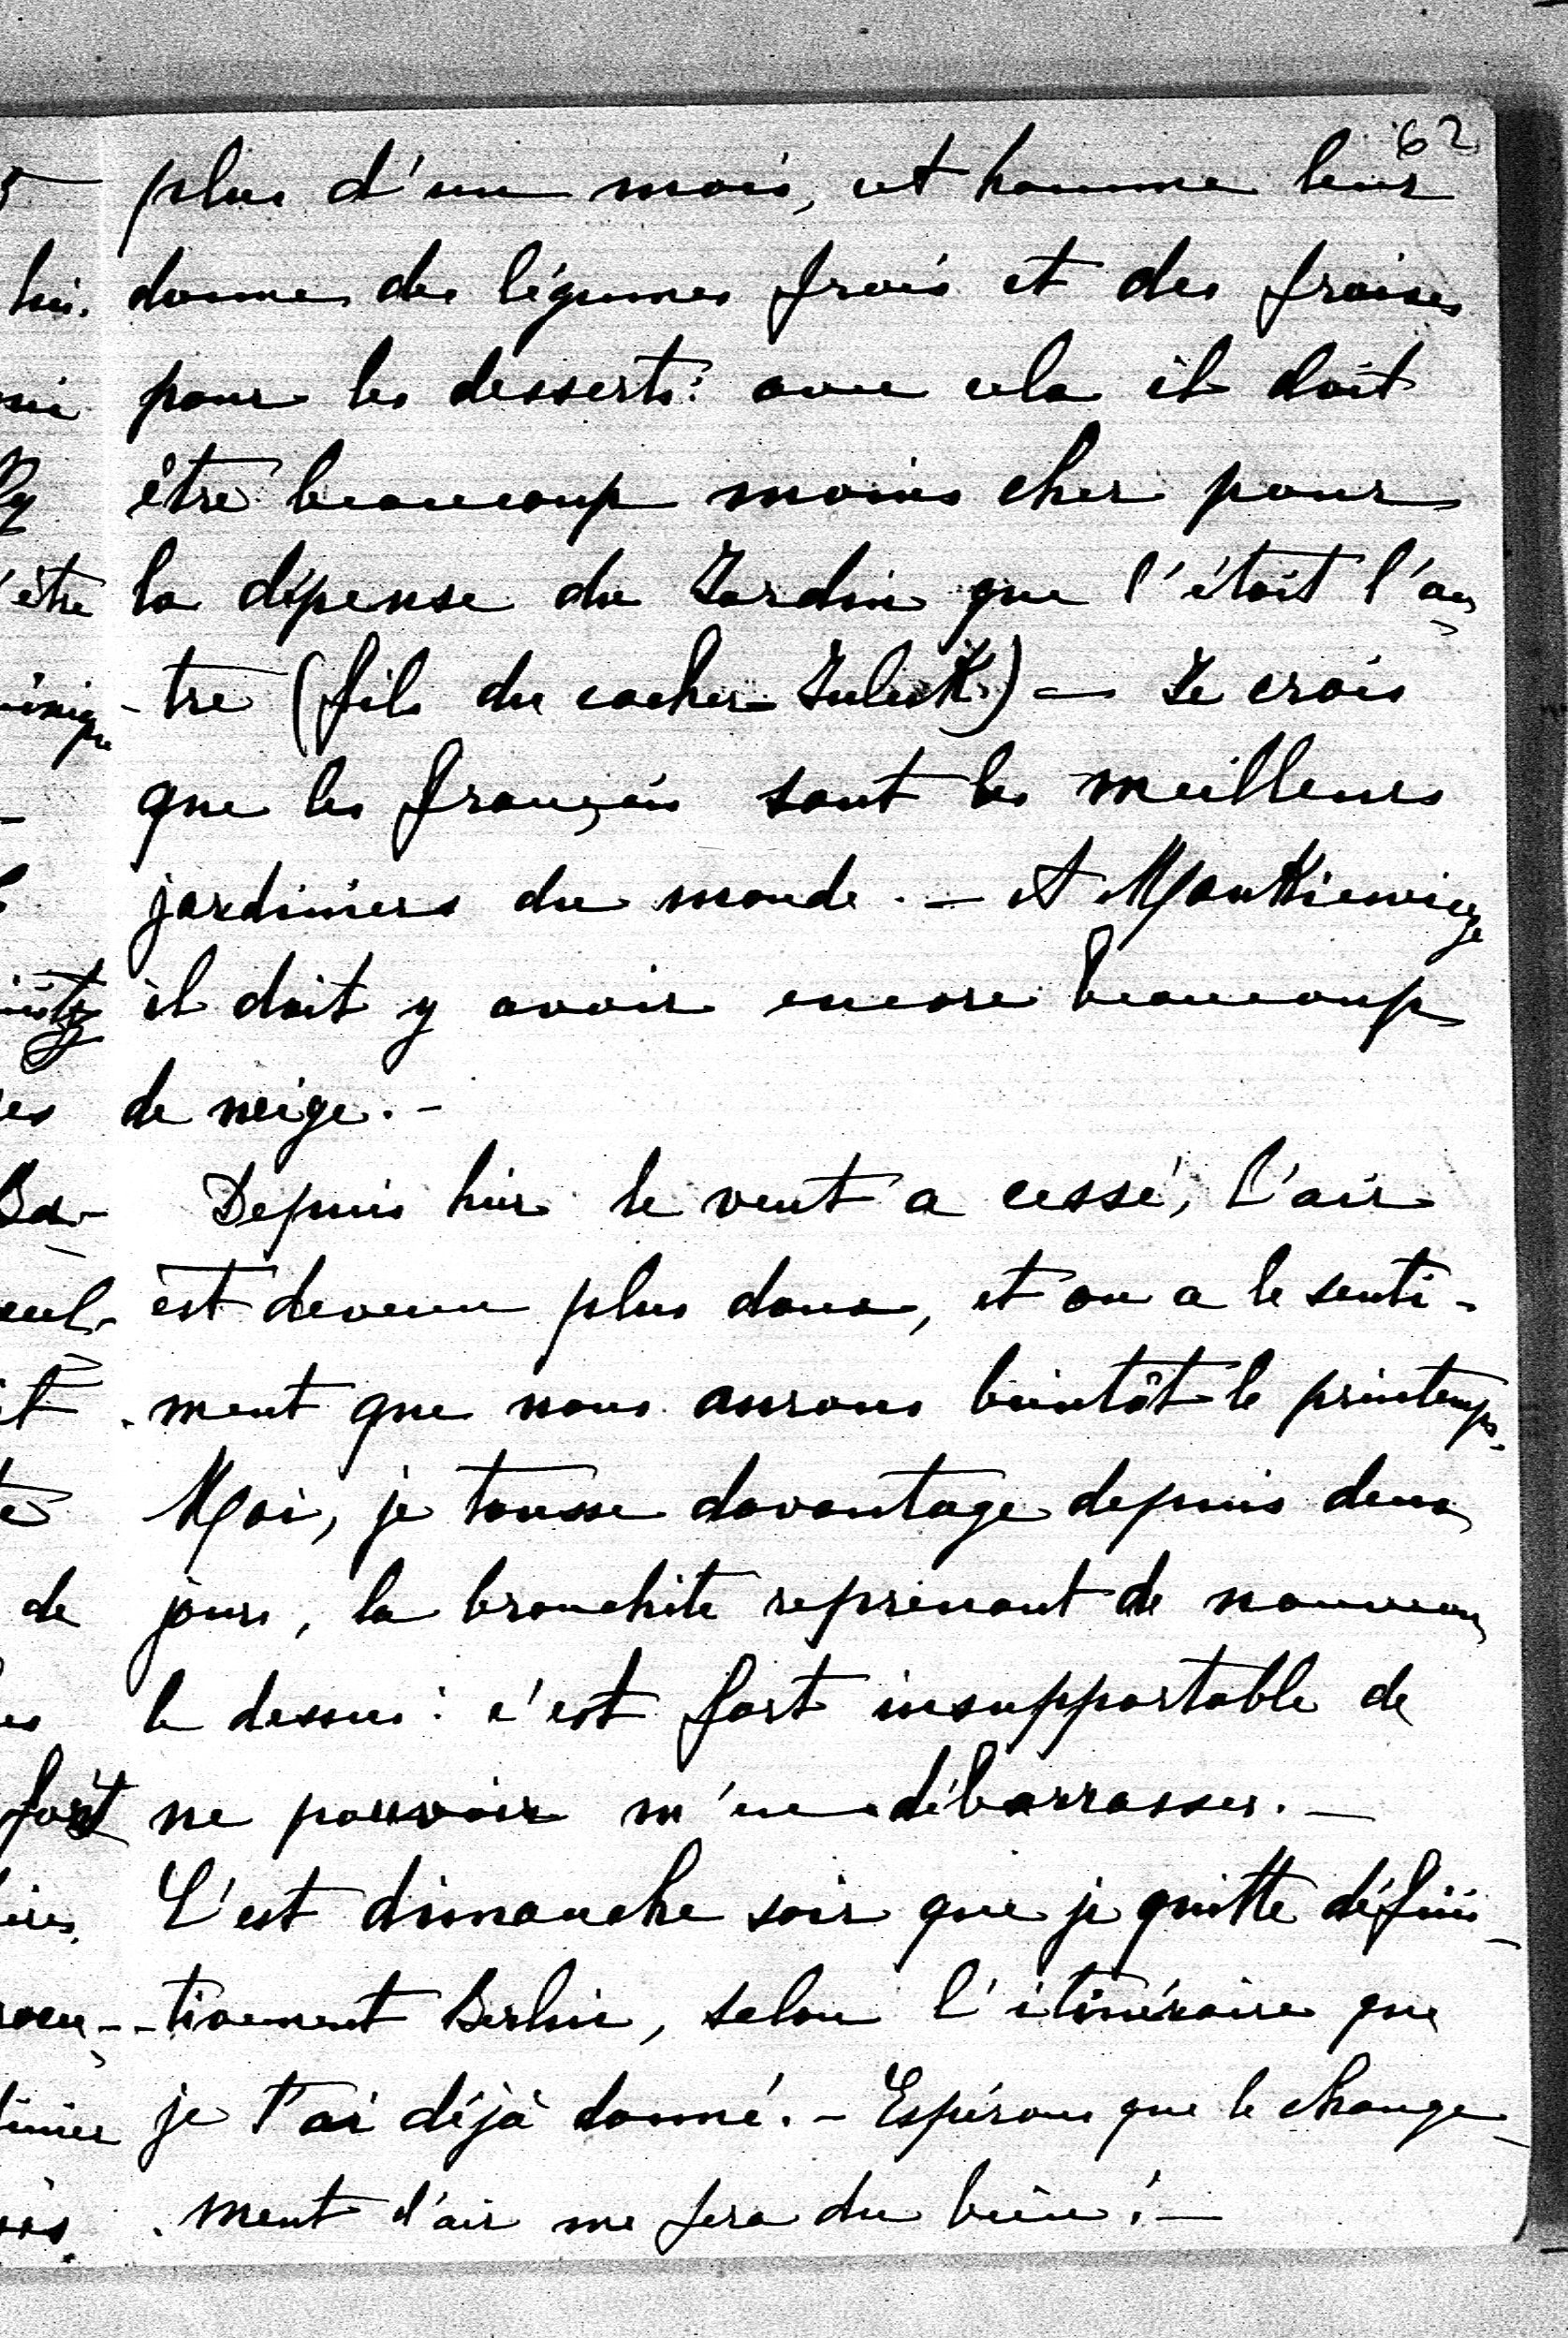 62
plus d'un mois, et homme leur
donne des légumes frais et des fraises
pour les desserts: avec cela il doit
être beaucoup moins cher pour
la dépense du Jardin que l'était l'au
-tre (fils du cocher ) — Je crois
que les français sont les meilleurs
jardiniers du monde. — A Mankiewicze
il doit y avoir encore beaucoup
de neige. -
Depuis hier le vent a cessé, l'air
est devenu plus doux, et on a le senti-
-ment que nous aurons bientôt le printemps.
Moi, je tousse davantage depuis deux
jours, la bronchite reprenant de nouveau
le dessus: c'est fort insupportable de
ne pouvoir m'en débarrasser. —
C'est dimanche soir que je quitte défini-
-tivement Berlin, selon l'itinéraire que
je t'ai déjà donné. - Espérons que le change-
-ment d'air me fera du bien! —